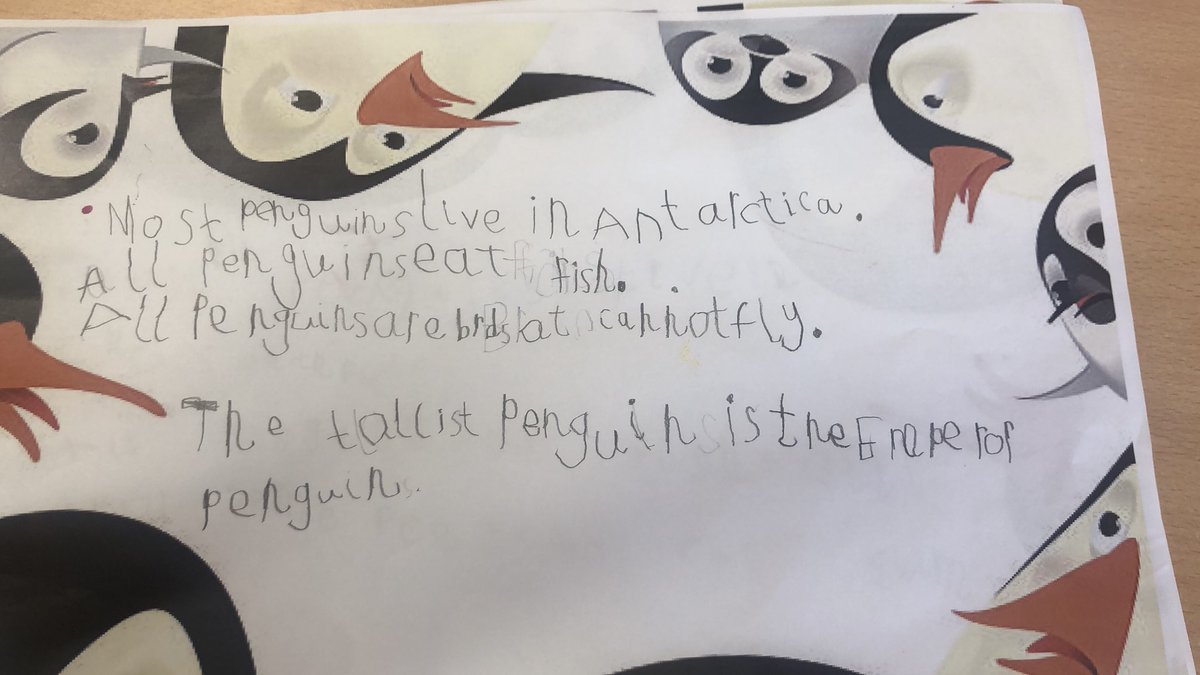 Most penguins live in Antarctica.
All penguins eat fish.
All Penguins are brids bat cannot fly.
The tallist Penguin is the Emperor
penguin.